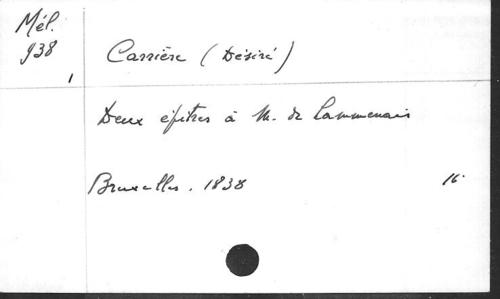 Mél.
938
1
Carrière (Désiré)
Deux épitres à M. de Lammenais
Bruxelles. 1838
16